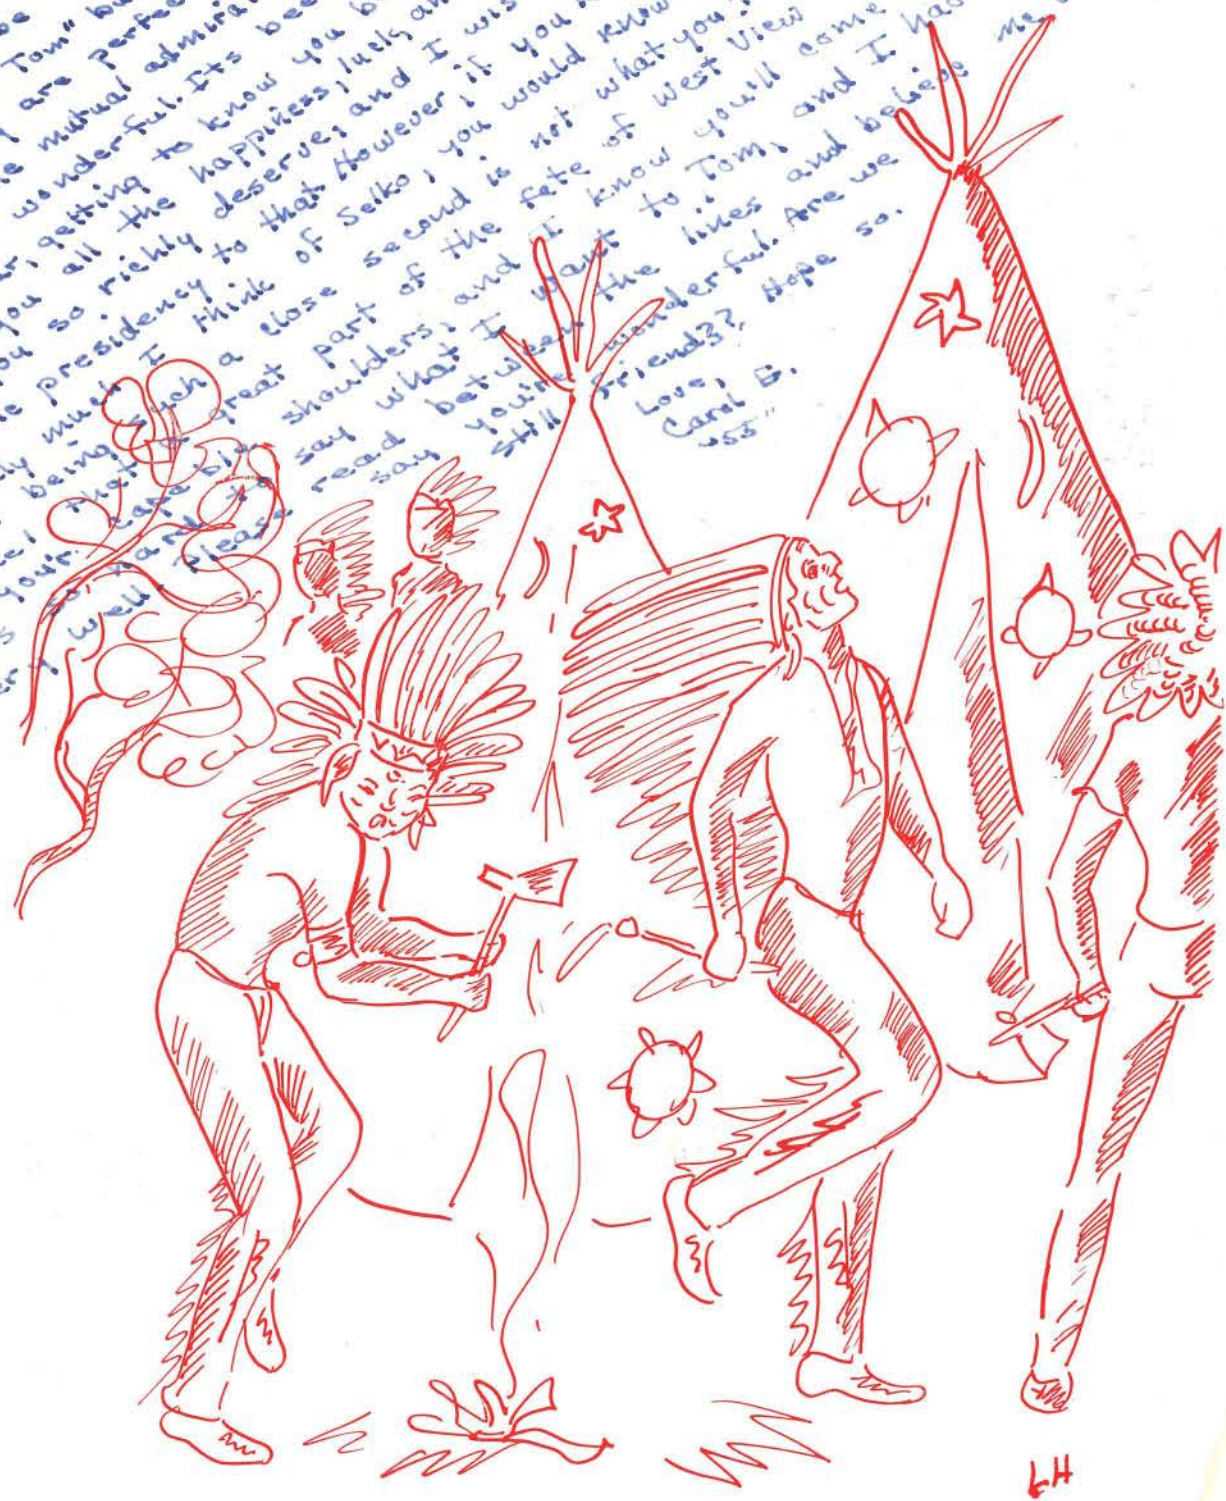 be
Tom" bu
are perfec
mutual admirat
wonderful. Its bee
getting to know you b
you all the happiness, luck, an
so richly deserve, and I wis
presidency to that. However, if you
much I think of Selko, you would know
being such a close second is not what you
that a great part of the fate of West View
your capable shoulders, and I know you'll come
so hard to say what I want to Tom, and I ha
well. Please read between the lines and believe me
say you're wonderful. Are we
still friends??, Hope so.
Love,
Carol B.
"55"
LH